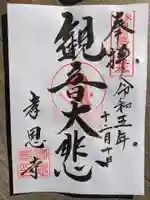 奉拝
令和五年
十二月十日
観音大悲
孝恩寺